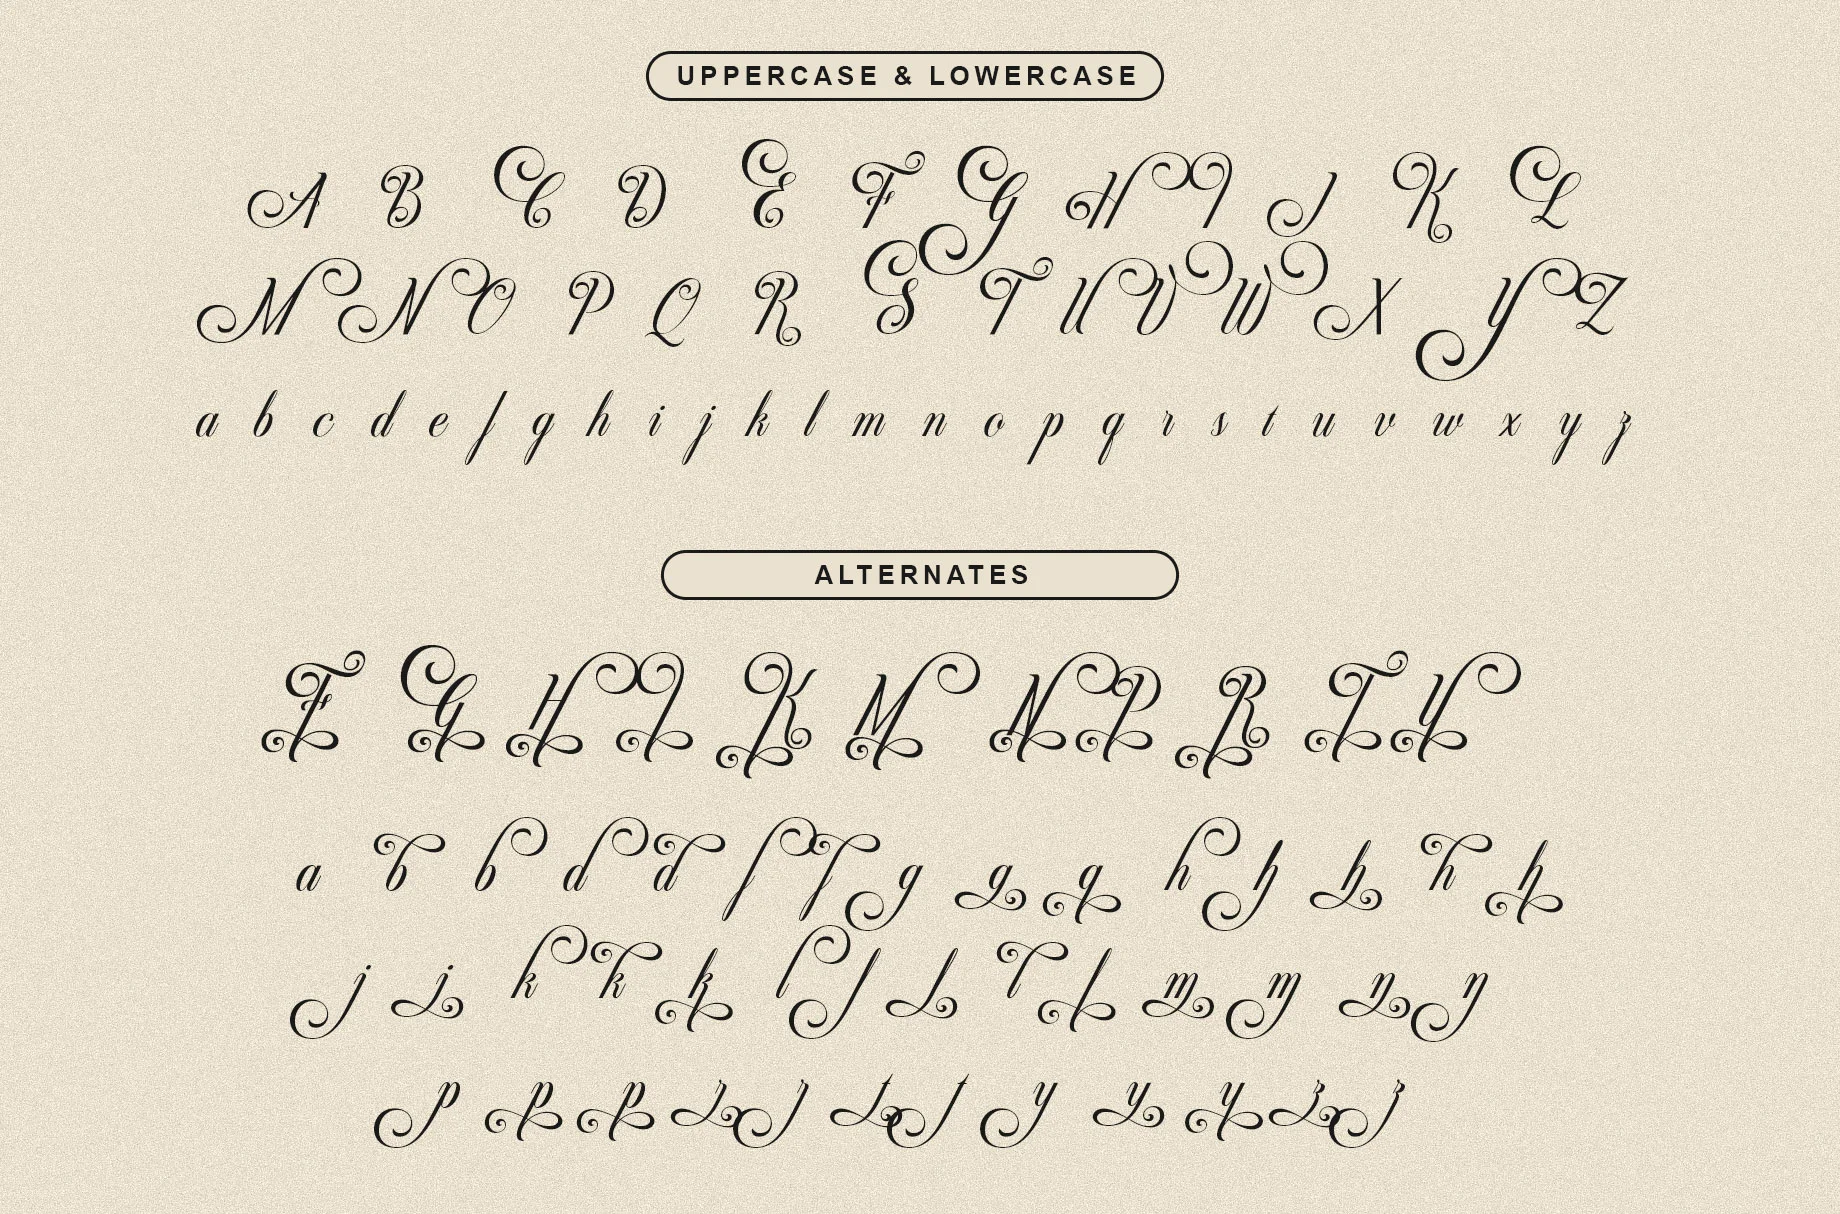 UPPERCASE & LOWERCASE
A B C D E F G H I J K L
M N O P Q R S T U V W X Y Z
a b c d e f g h i j k l m n o p q r s t u v w x y z
ALTERNATES
F G H I K M N P R T Y
a b b d d f f g g q h h h h h
j j k k k l l l l l m m n n
p p p r r t t y y y z z